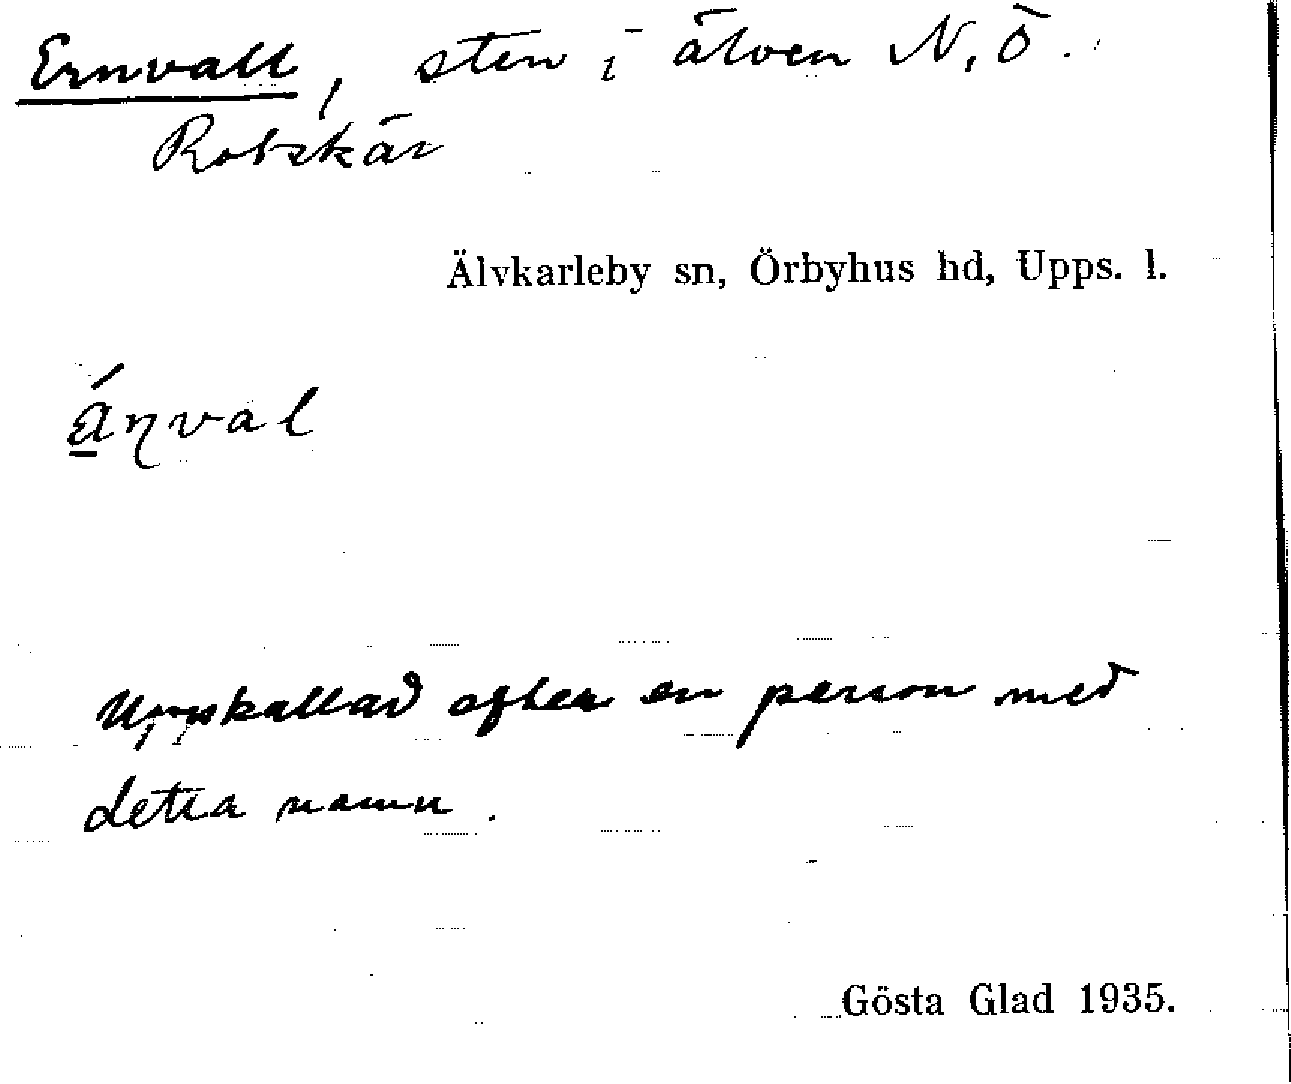 Ernvall, sten i älven N.Ö.
Rotskär
Älvkarleby sn, Örbyhus hd, Upps. l.
Uppkallad efter en person med
detta namn.
Gösta Glad 1935.